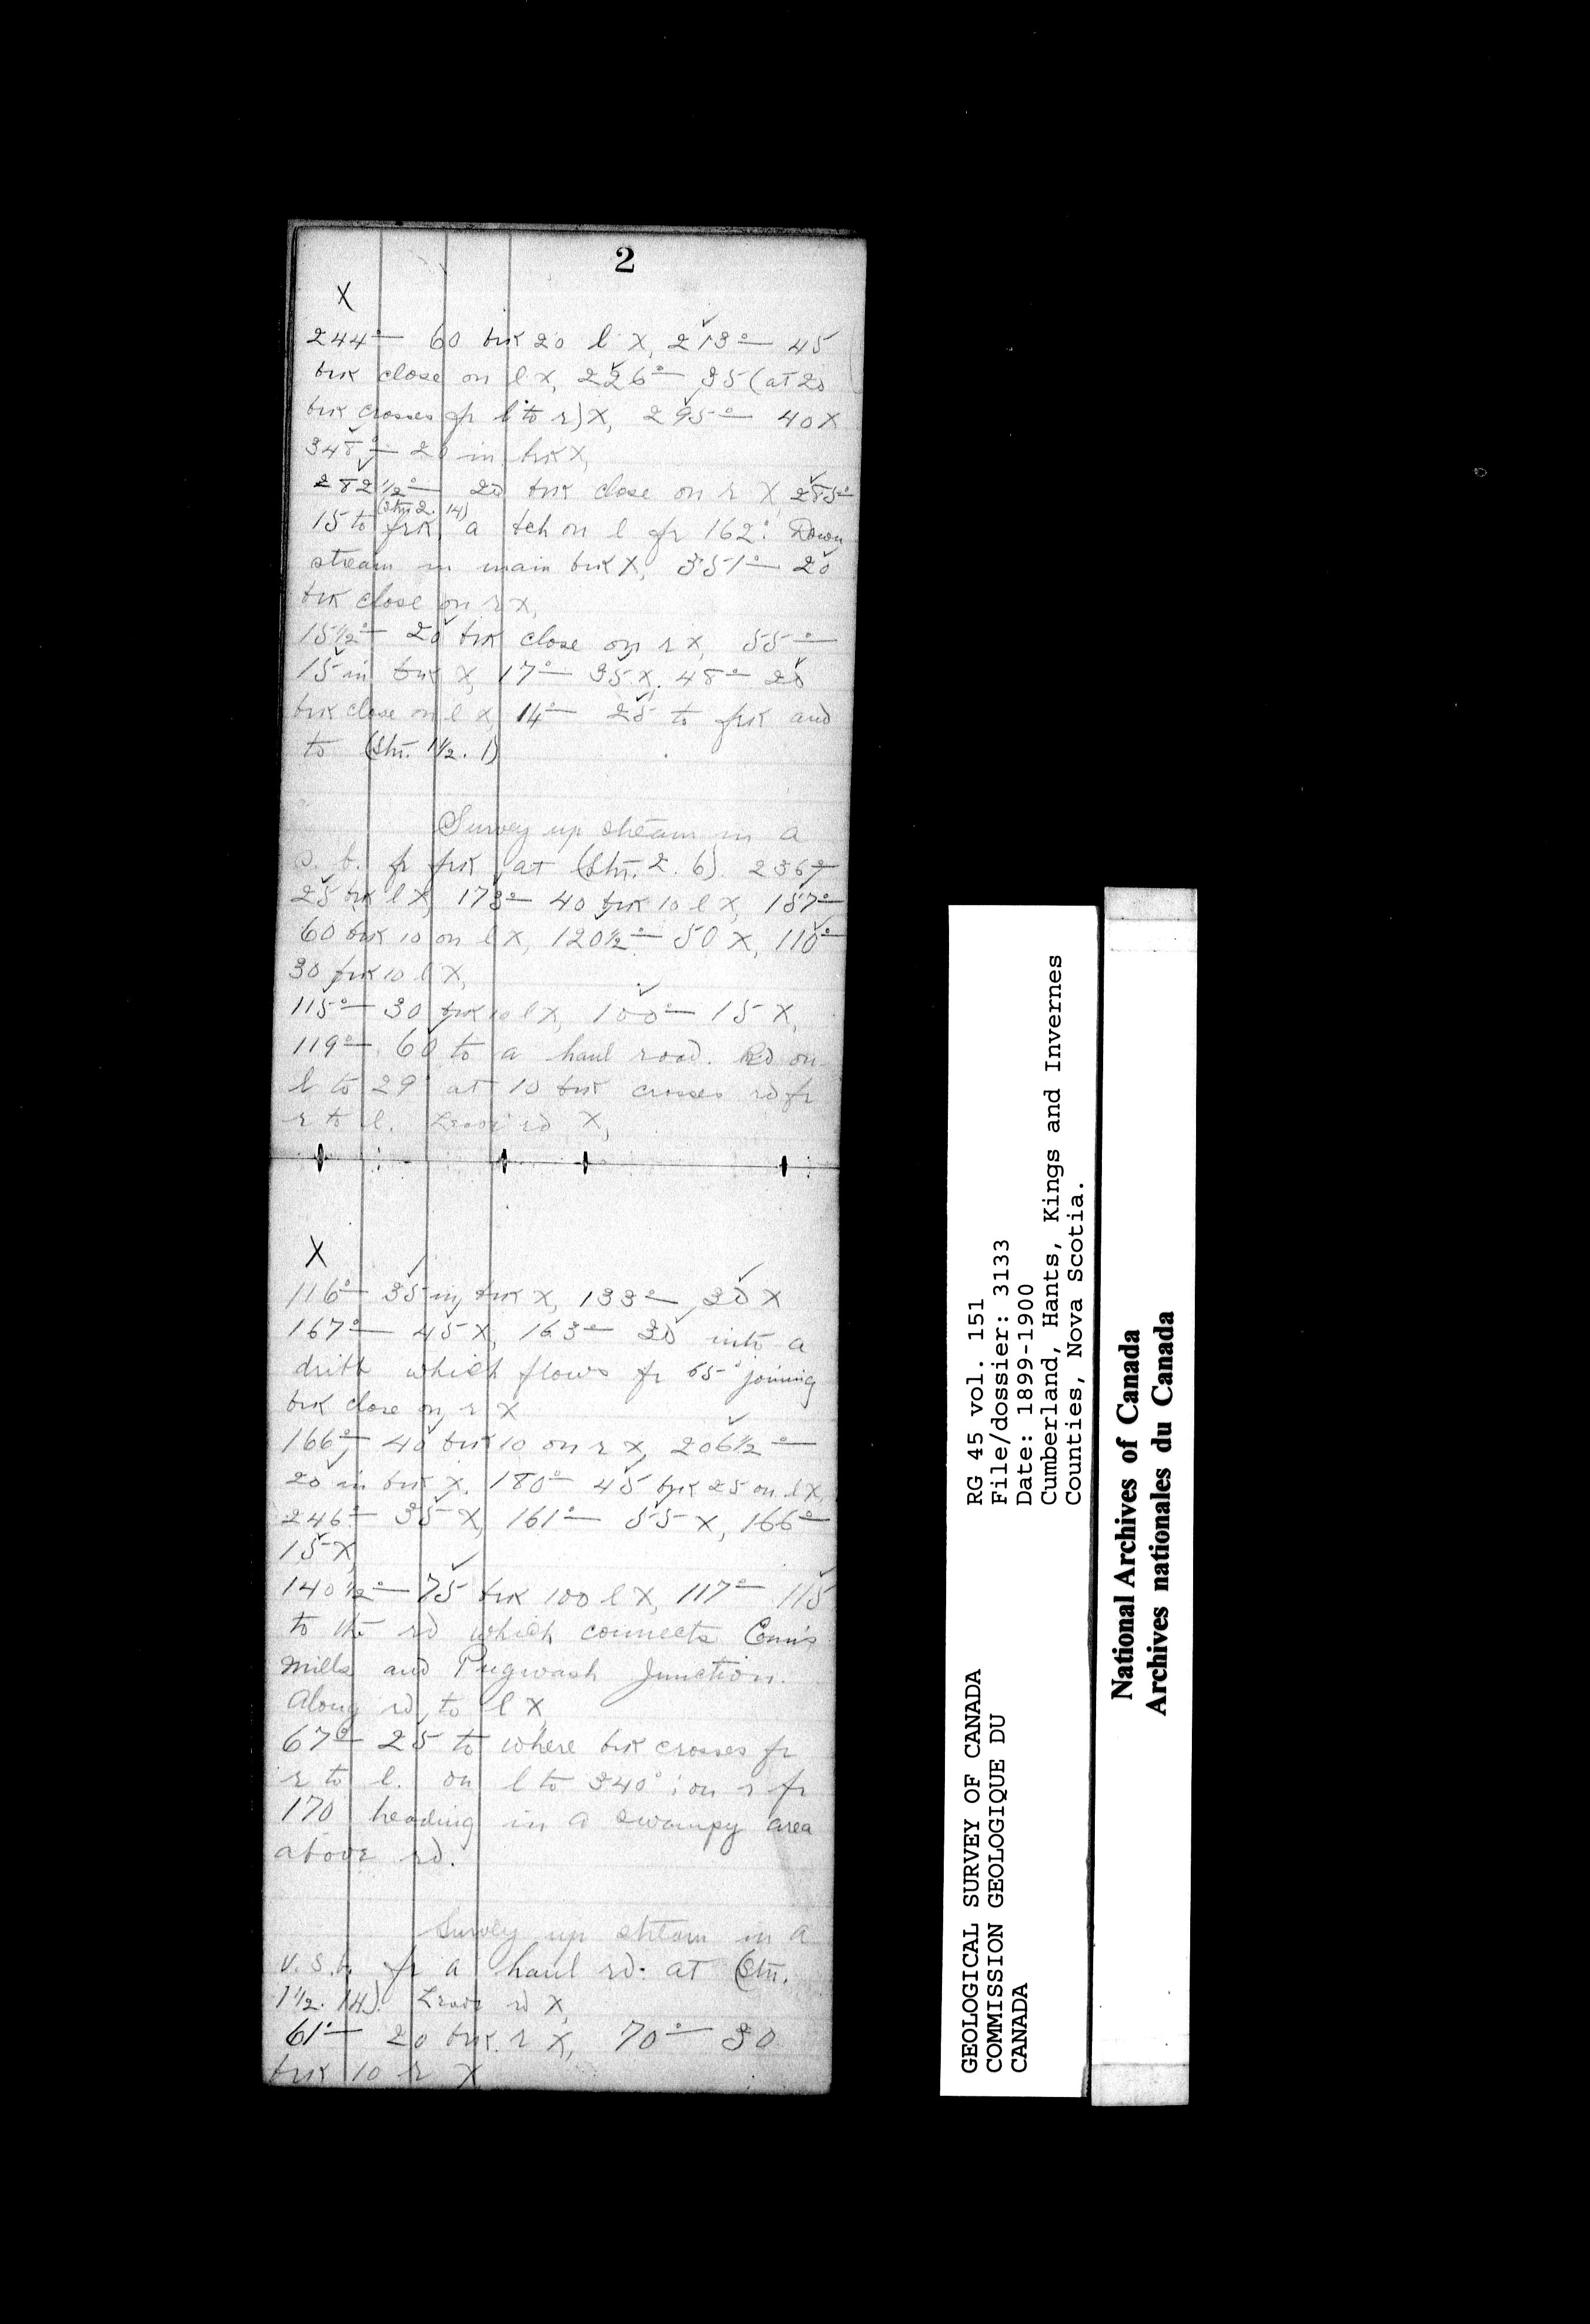 2
X
244° — 60 brk 20 l X, 213° — 45
brk close on l X, 226° — 35 (at 20
brk crosses fr l to r) X, 295° — 40 X
348° — 20 in brk X,
282 1/2° — 20 brk close on r X, 285° —
(Stn 2. 14)
15 to frk, a bch on l fr 162°. Down
stream in main brk X, 351° — 20
brk close on r X,
15 1/2° — 20 brk close on r X, 55° —
15 in brk X, 17° — 35 X, 48° — 20
brk close on l X, 14° — 25 to frk and
to (Stn. 1 1/2. 1)
Survey up stream in a
s. b. fr frk at (Stn. 2. 6). 236° —
25 brk l X, 173° — 40 brk 10 l X, 157° —
60 brk 10 on l X, 120 1/2° — 50 X, 110° —
30 brk 10 l X,
115° — 30 brk 10 l X, 100° — 15 X,
119° — 60 to a haul road. Rd on
l to 29° at 10 brk crosses rd fr
r to l. Leave rd X,
X
116° — 35 in brk X, 133° — 30 X
167° — 45 X, 163° — 30 into a
which flows fr 65° joining
brk close on r X
166° — 40 brk 10 on r X, 206 1/2° —
20 in brk X, 180° — 45 brk 25 on l X,
246° — 35 X, 161° — 55 X, 166° —
15 X,
140 1/2° — 75 brk 100 l X, 117° — 115
to the rd which connects
Mills and Pugwash Junction.
Along rd, to l X
67° — 25 to where brk crosses fr
r to l. on l to 340° ; on r fr
170 heading in a swampy area
above rd.
Survey up stream in a
v. s. b. fr a haul rd. at (Stn.
1 1/2. 14). Leave rd X,
61° — 20 brk r X, 70° — 30
brk 10 r X
GEOLOGICAL SURVEY OF CANADA
COMMISSION GEOLOGIQUE DU
CANADA
RG 45 vol. 151
File/dossier: 3133
Date: 1899-1900
Cumberland, Hants, Kings and Invernes
Counties, Nova Scotia.
National Archives of Canada
Archives nationales du Canada